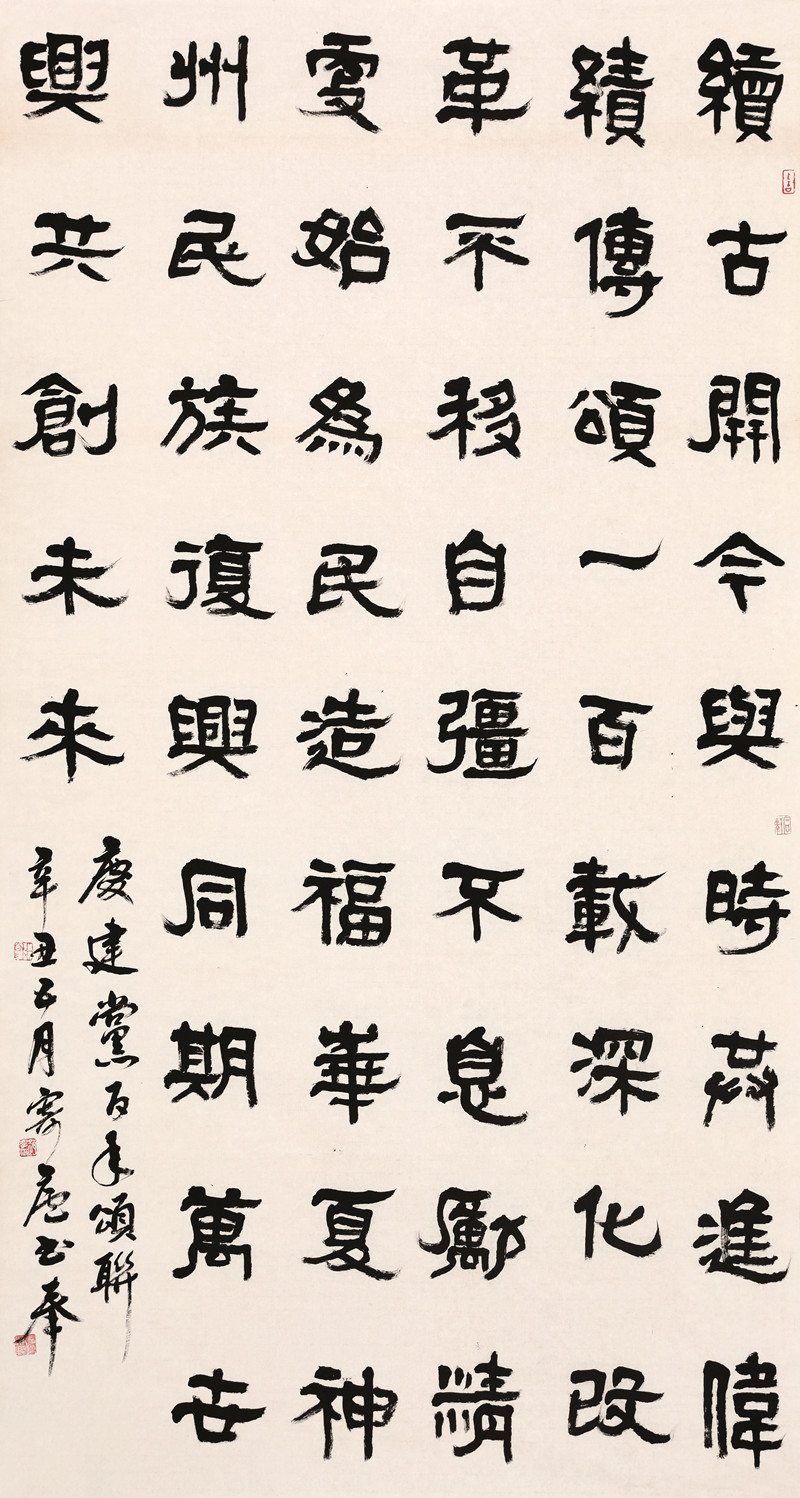 續古開今與時共進偉
績傳頌一百載深化改
革不移自彊不息勵精
更始為民造福華夏神
州民族復興同期萬世
興共創未來
慶建黨百年頌聯
辛丑五月廬書奉